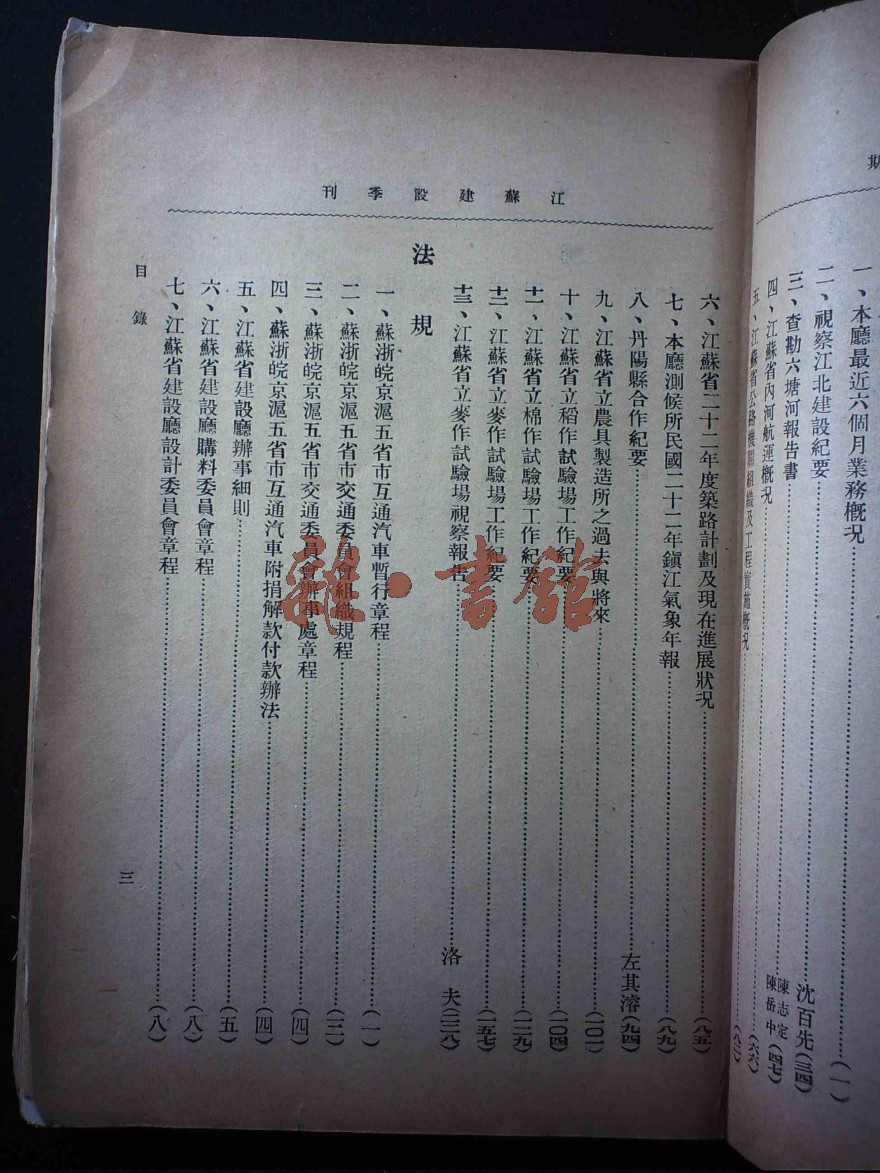 期
一、本廳最近六個月業務概況……(一)
二、視察江北建設紀要……沈百先(三四)
三、查勘六塘河報告書……陳志定 陳岳中(四七)
四、江蘇省內河航運概況……(六六)
五、江蘇省公路機關組織及工程實施概況……(八二)
江蘇建設季刊
六、江蘇省二十二年度築路計劃及現在進展狀況……(八五)
七、本廳測候所民國二十一年鎮江氣象年報……(八九)
八、丹陽縣合作紀要……左其濬(九四)
九、江蘇省立農具製造所之過去與將來……(一〇一)
十、江蘇省立稻作試驗場工作紀要……(一〇四)
十一、江蘇省立棉作試驗場工作紀要……(一二九)
十二、江蘇省立麥作試驗場工作紀要……(一五七)
十三、江蘇省立麥作試驗場視察報告……洛夫(二三八)
法規
一、蘇浙皖京滬五省市互通汽車暫行章程……(一)
二、蘇浙皖京滬五省市交通委員會組織規程……(三)
三、蘇浙皖京滬五省市交通委員會辦事處章程……(四)
四、蘇浙皖京滬五省市互通汽車附捐解款付款辦法……(四)
五、江蘇省建設廳辦事細則……(五)
六、江蘇省建設廳購料委員會章程……(八)
七、江蘇省建設廳設計委員會章程……(八)
目錄
三
雜·書館